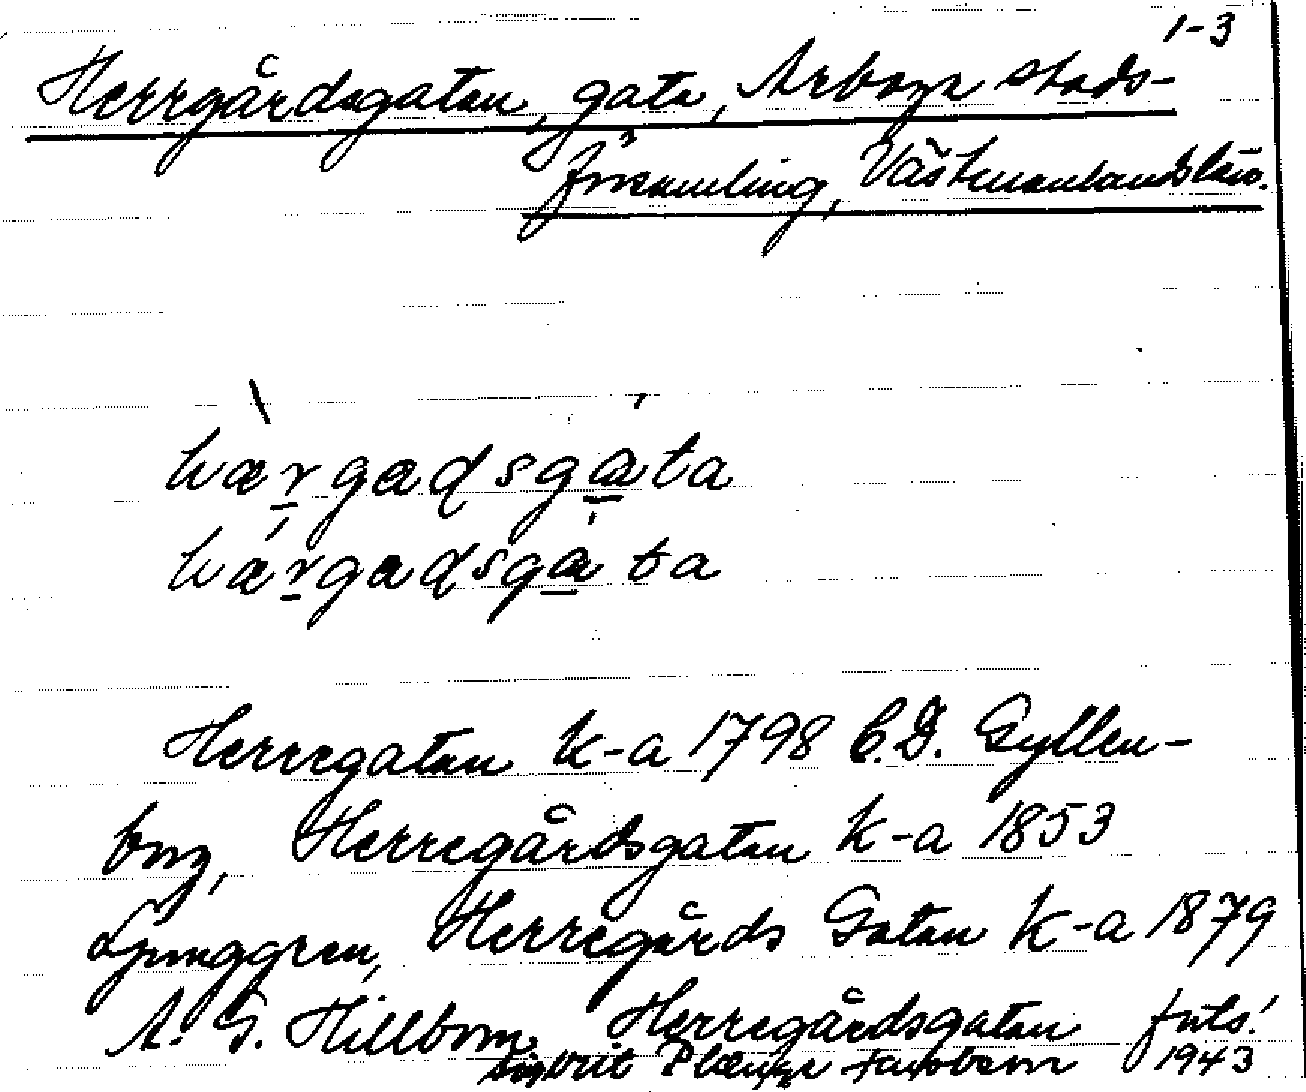 1-3
Herrgårdsgatan, gata, Arboga stads-
församling, Västmanlands län.
hærgadsgata
hærgadsgata
Herregatan k-a 1798 C.D. Gyllen-
borg, Herregårdsgatan k-a 1853
Ljunggren, Herregårds Gatan k-a 1879
A. G. Hillbom, Herregårdsgatan forts!
Jacobson 1943